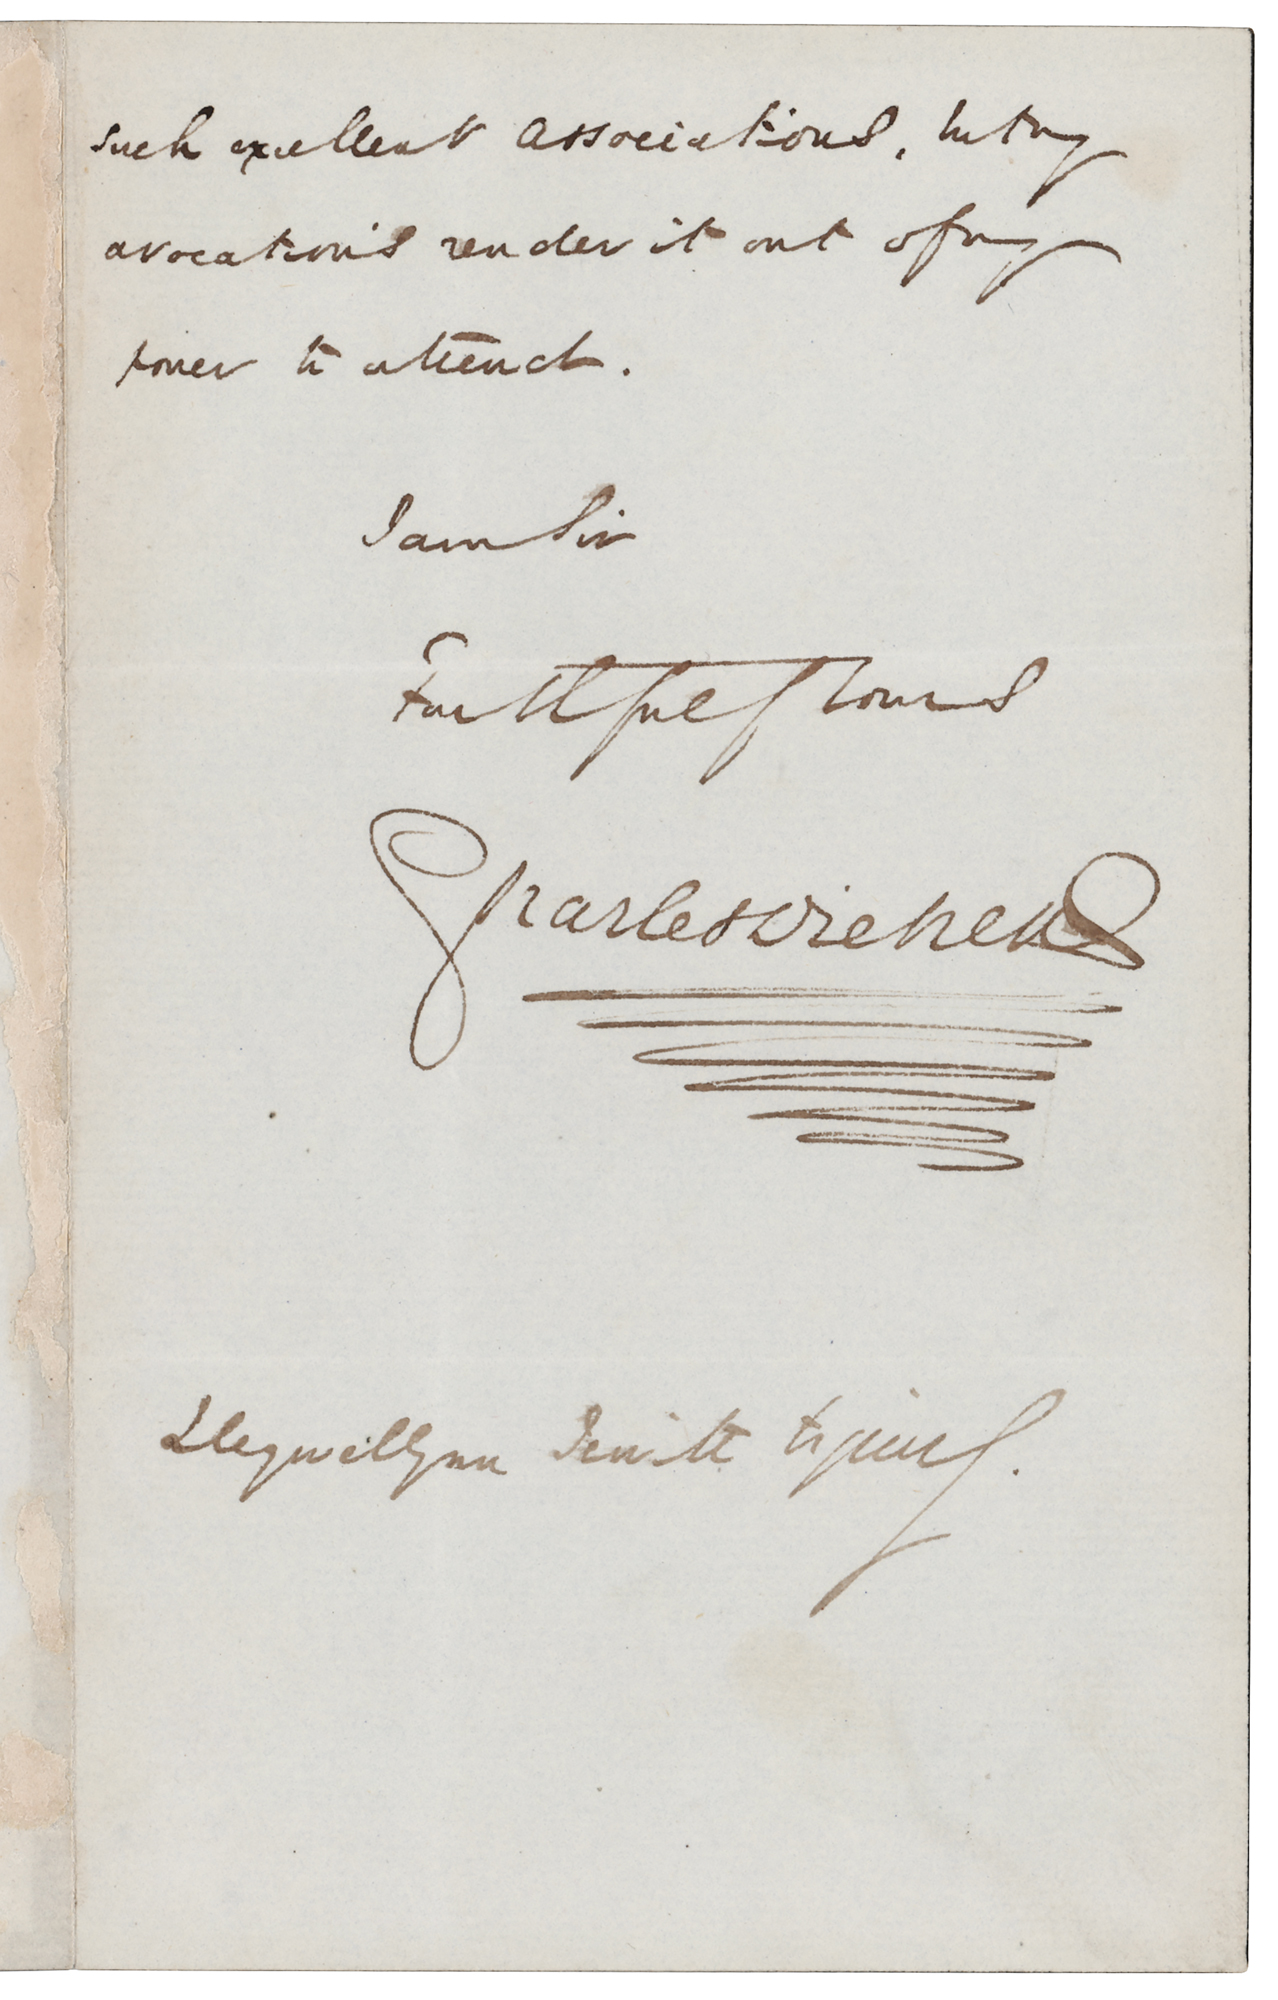 such excellent associations, but my
avocations render it out of my
power to attend.
I am Sir
Faithfully Yours
Charles Dickens
Llewyellynn Jewitt Esquire.